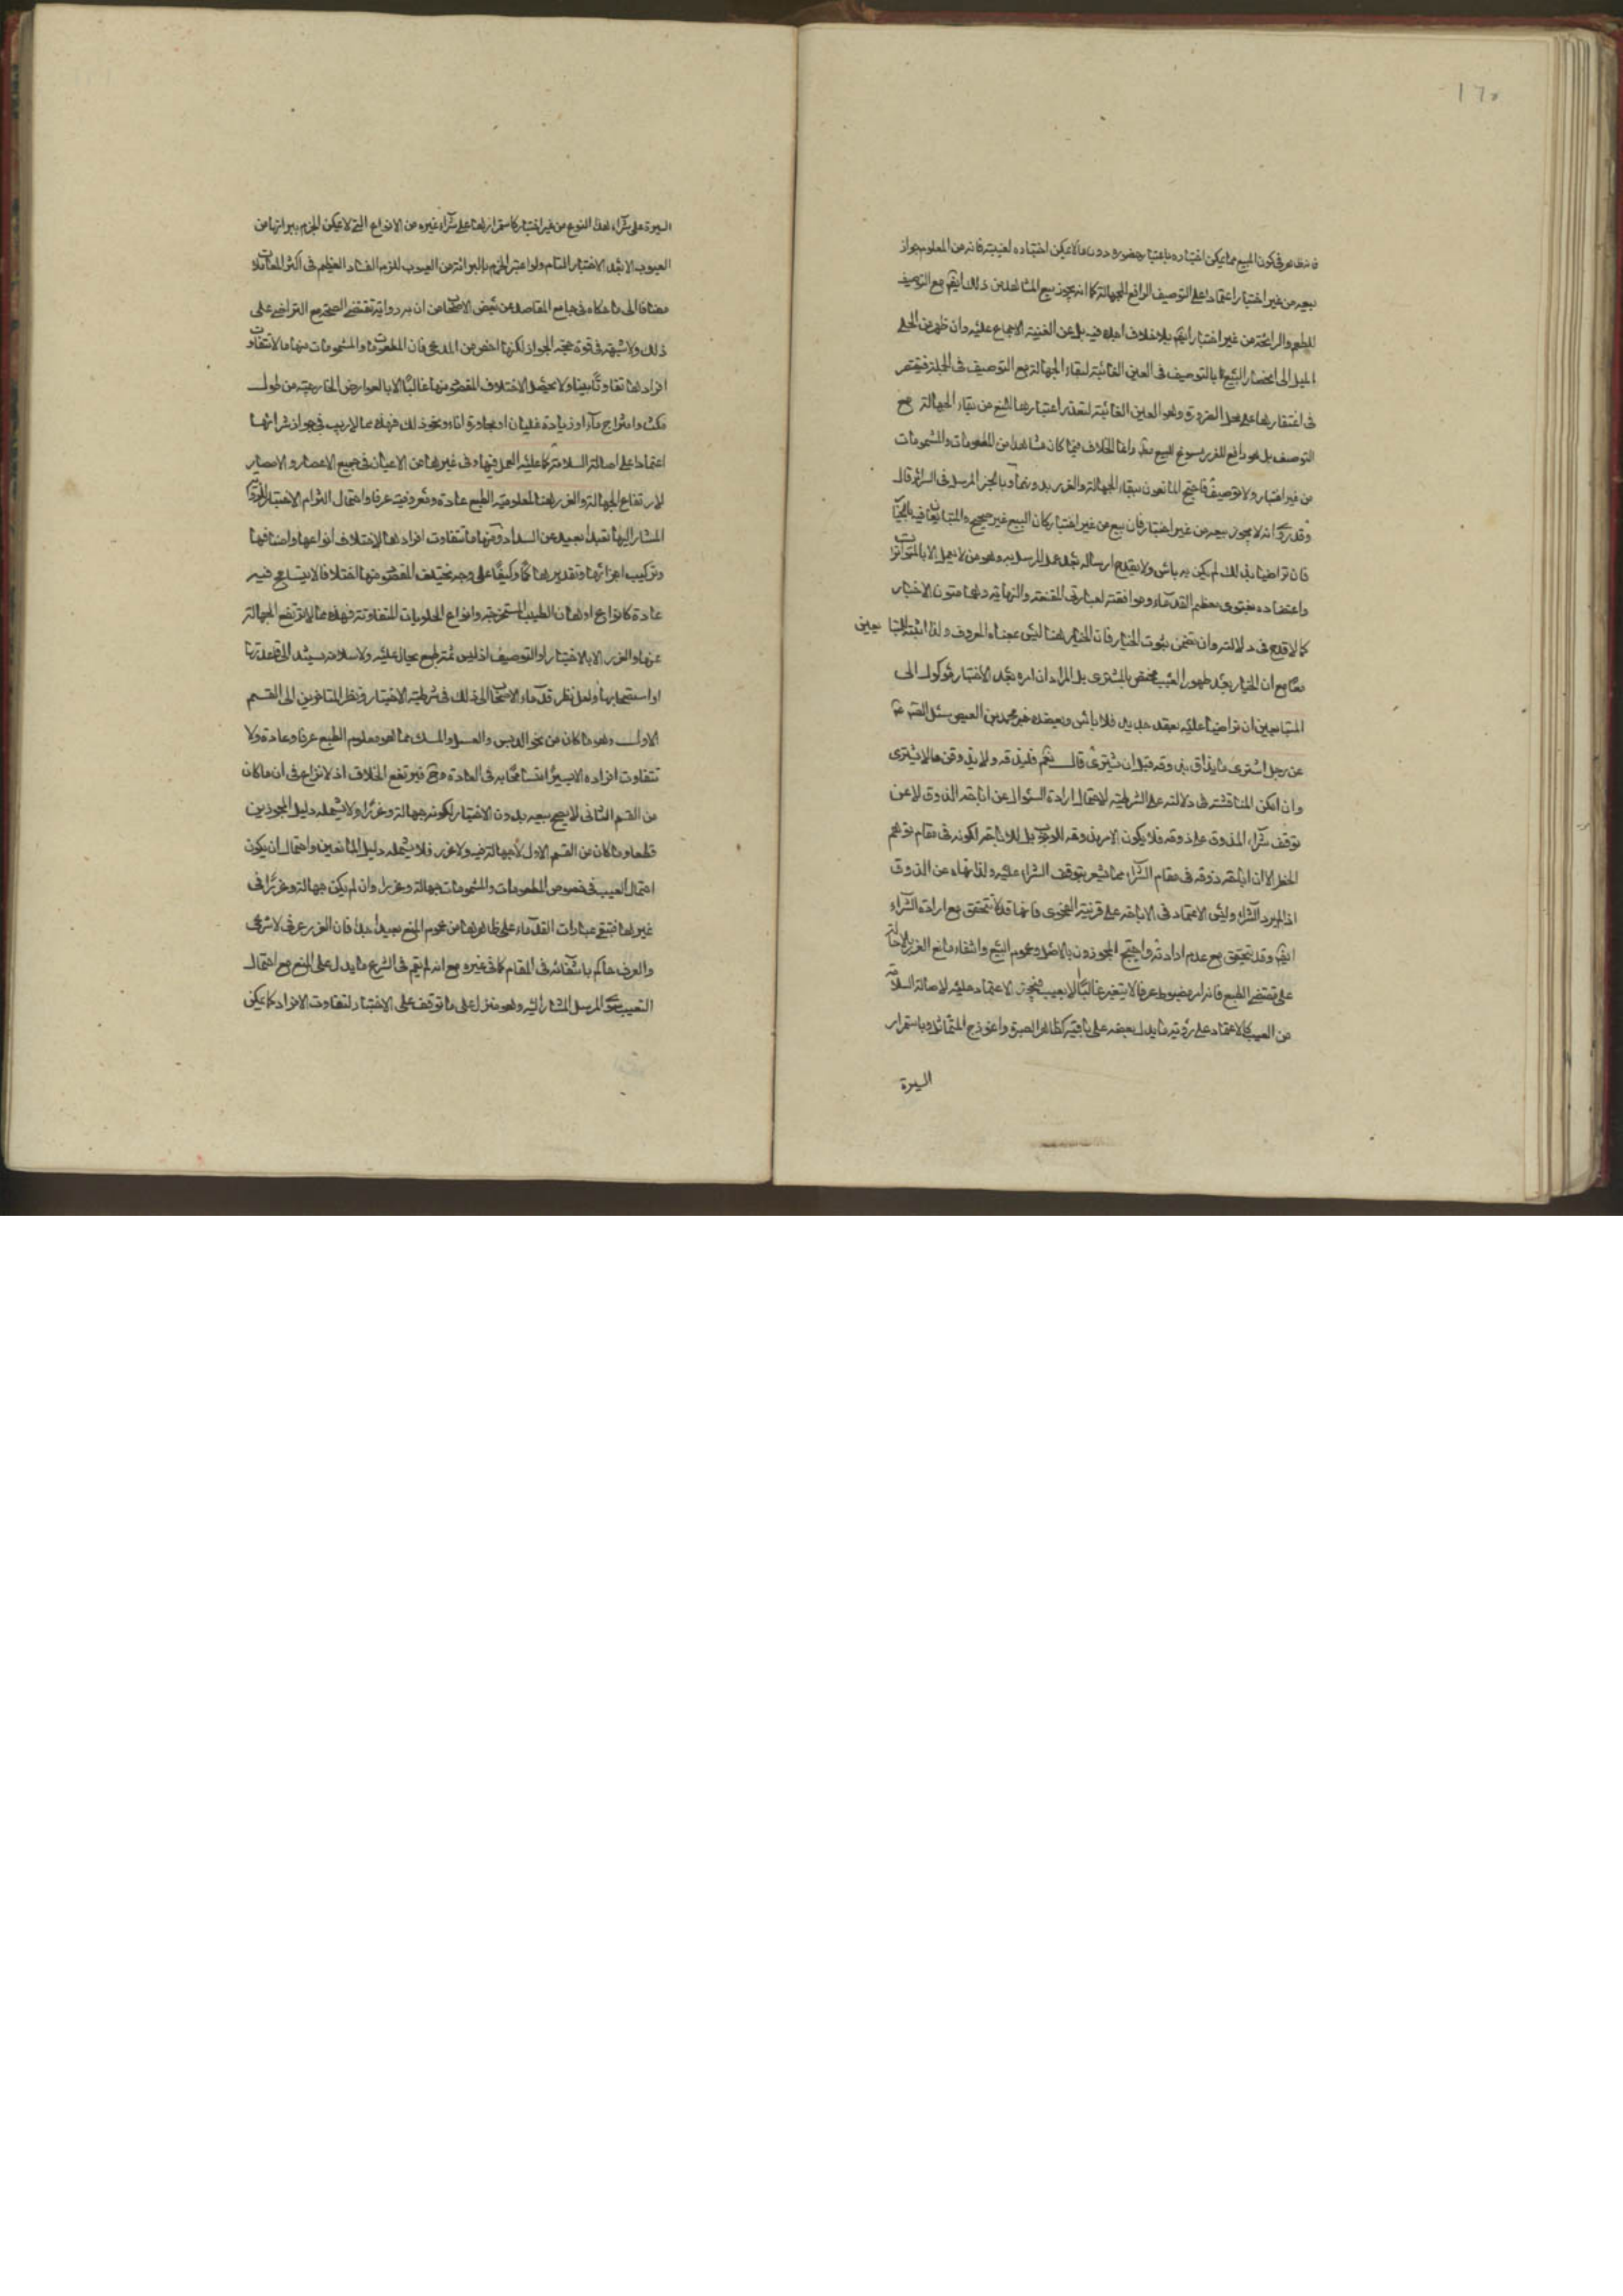 ١٦٥
فانه ظاهر فى كون المبيع مما يمكن اختباره باعتبار حضوره دون ما لا يمكن اختباره لغيبته فانه من المعلوم جواز
بيعه من غير اختبار اعتمادا على التوصيف الرافع للجهالة كما انه يجوز بيع المشاهد من ذلك ايضا مع التوصيف
للطعم والرائحة من غير اختبار ايضا بلا خلاف اجده فيه بل عن الغنية الاجماع عليه وان ظهر من الحلى
الميل الى انحصار البيع بالتوصيف فى العين الغائبة لبقاء الجهالة مع التوصيف فى الجملة فيقتصر
فى اغتفارها على محل الضرورة وهو العين الغائبة لتعذر اعتبارها المنع من بقاء الجهالة مع
التوصيف بل هو رافع للغرر مسوغ للبيع وانما الخلاف فيما كان مشاهدا من المطعومات والمشمومات
من غير اختبار ولا توصيف فاحتج المانعون ببقاء الجهالة والغرر بدونهما وبالخبر المرسل فى السرائر قال
وقد روى انه لا يجوز بيعه من غير اختبار فان بيع من غير اختبار كان البيع غير صحيح والمتبايعان فيه بالخيار
فان تراضيا بذلك لم يكن به بأس ولا يقدح ارساله بعد عمل المرسل به وهو من لا يعمل الا بالمتواترات
واعتضاده بفتوى معظم القدماء وموافقته لعبارتى المقنعة والنهاية وهما متون الاخبار
كما لا قدح فى دلالته وان تضمن ثبوت الخيار فان الخيار هنا ليس بمعناه المعروف ولذا اثبته للمتبايعين
معا مع ان الخيار بعد ظهور العيب مختص بالمشترى بل المراد ان امره بعد الاختبار موكول الى
المتبايعين ان تراضيا عليه بعقد جديد فلا بأس ويعضده خبر محمد بن العيص سئل الصادق ع
عن رجل اشترى ما يذاق يذوقه قبل ان يشترى قال نعم فليذقه ولا يذوقن ما لا يشترى
وان امكن المناقشة فى دلالته على الشرطية لاحتمال ارادة السئوال عن اباحة الذوق لا عن
توقف شراء المذوق على ذوقه فلا يكون الامر بذوقه للوجوب بل للاباحة لكونه فى مقام توهم
الحظر الا ان اباحة ذوقه فى مقام الشراء مما يشعر بتوقف الشراء عليه ولذا نهاه عن الذوق
اذا لم يرد الشراء وليس الاعتماد فى الاباحة على قرينة الفحوى فانها قد لا تتحقق مع ارادة الشراء
ايضا وقد تتحقق مع عدم ارادته واحتج المجوزون بالاصل وعموم البيع وانتفاء مانع الغرر بالاحالة
على مقتضى الطبع فانه امر مضبوط عرفا لا يتغير غالبا الا بعيب فيجوز الاعتماد عليه لاصالة السلامة
من العيب كالاعتماد على رؤية ما يدل بعضه على باقيه كظاهر الصبرة وانموذج المتماثل وباستمرار
السيرة
السيرة على شراء هذا النوع من غير اختبار كاستمرارها على شراء غيره من الانواع التى لا يمكن الجزم ببرائتها من
العيوب الا بعد الاختبار التام ولو اعتبر الجزم بالبرائة من العيوب للزم الفساد العظيم فى اكثر المعاملات
مضافا الى ما حكاه فى جامع المقاصد عن بعض الاصحاب من ان به رواية تقتضى الصحة مع التراضى على
ذلك ولا شبهة فى قوة حجة الجواز لكنها اخص من المدعى فان المطعومات والمشمومات منها ما لا تتفاوت
افراده تفاوتا بينا ولا يحصل الاختلاف المقصود منها غالبا الا بالعوارض الخارجية من طول
مكث وامتزاج ماء او زيادة غليان او مجاورة اناء ونحو ذلك فهذه مما لا ريب فى جواز شرائها
اعتمادا على اصالة السلامة كما عليه العمل فيها وفى غيرها من الاعيان فى جميع الاعصار والامصار
لارتفاع الجهالة والغرر هنا لمعلومية الطبع عادة ومعروفيته عرفا واحتمال التزام الاختبار للرواية
المشار اليها تعبدا بعيد عن السداد ومنها ما تتفاوت افراده لاختلاف انواعها واصنافها
وتركيب اجزائها وتقديرها كما وكيفا على وجه يختلف المقصود منها اختلافا لا يتسامح فيه
عادة كانواع ادهان الطيب المستخرجة وانواع الحلويات المتفاوتة فهذه مما لا ترتفع الجهالة
عنها والغرر الا بالاختبار او التوصيف اذ ليس ثمة طبع يحال عليه ولا سلامة يستند الى قاعدتها
او استصحابها ولعل نظر قدماء الاصحاب الى ذلك فى شرطية الاختبار ونظر المتاخرين الى القسم
الاول وهو ما كان من نحو الدبس والعسل والمسك مما هو معلوم الطبع عرفا وعادة ولا
تتفاوت افراده الا يسيرا يتسامح به فى العادة وح فيرتفع الخلاف اذ لا نزاع فى ان ما كان
من القسم الثانى لا يصح بيعه بدون الاختبار لكونه جهالة وغررا ولا يشمله دليل المجوزين
قطعا وما كان من القسم الاول لا جهالة فيه ولا غرر فلا يشمله دليل المانعين واحتمال ان يكون
احتمال العيب فى خصوص المطعومات والمشمومات جهالة وغررا وان لم يكن جهالة وغررا فى
غيرها فتبقى عبارات القدماء على ظاهرها من عموم المنع بعيد جدا فان الغرر عرفى لا شرعى
والعرف حاكم بانتفائه فى المقام كما فى غيره مع انه لم يقم فى الشرع ما يدل على المنع مع احتمال
التعيب سوى المرسل المشار اليه وهو منزل على ما توقف على الاختبار لتفاوت الافراد كما يمكن